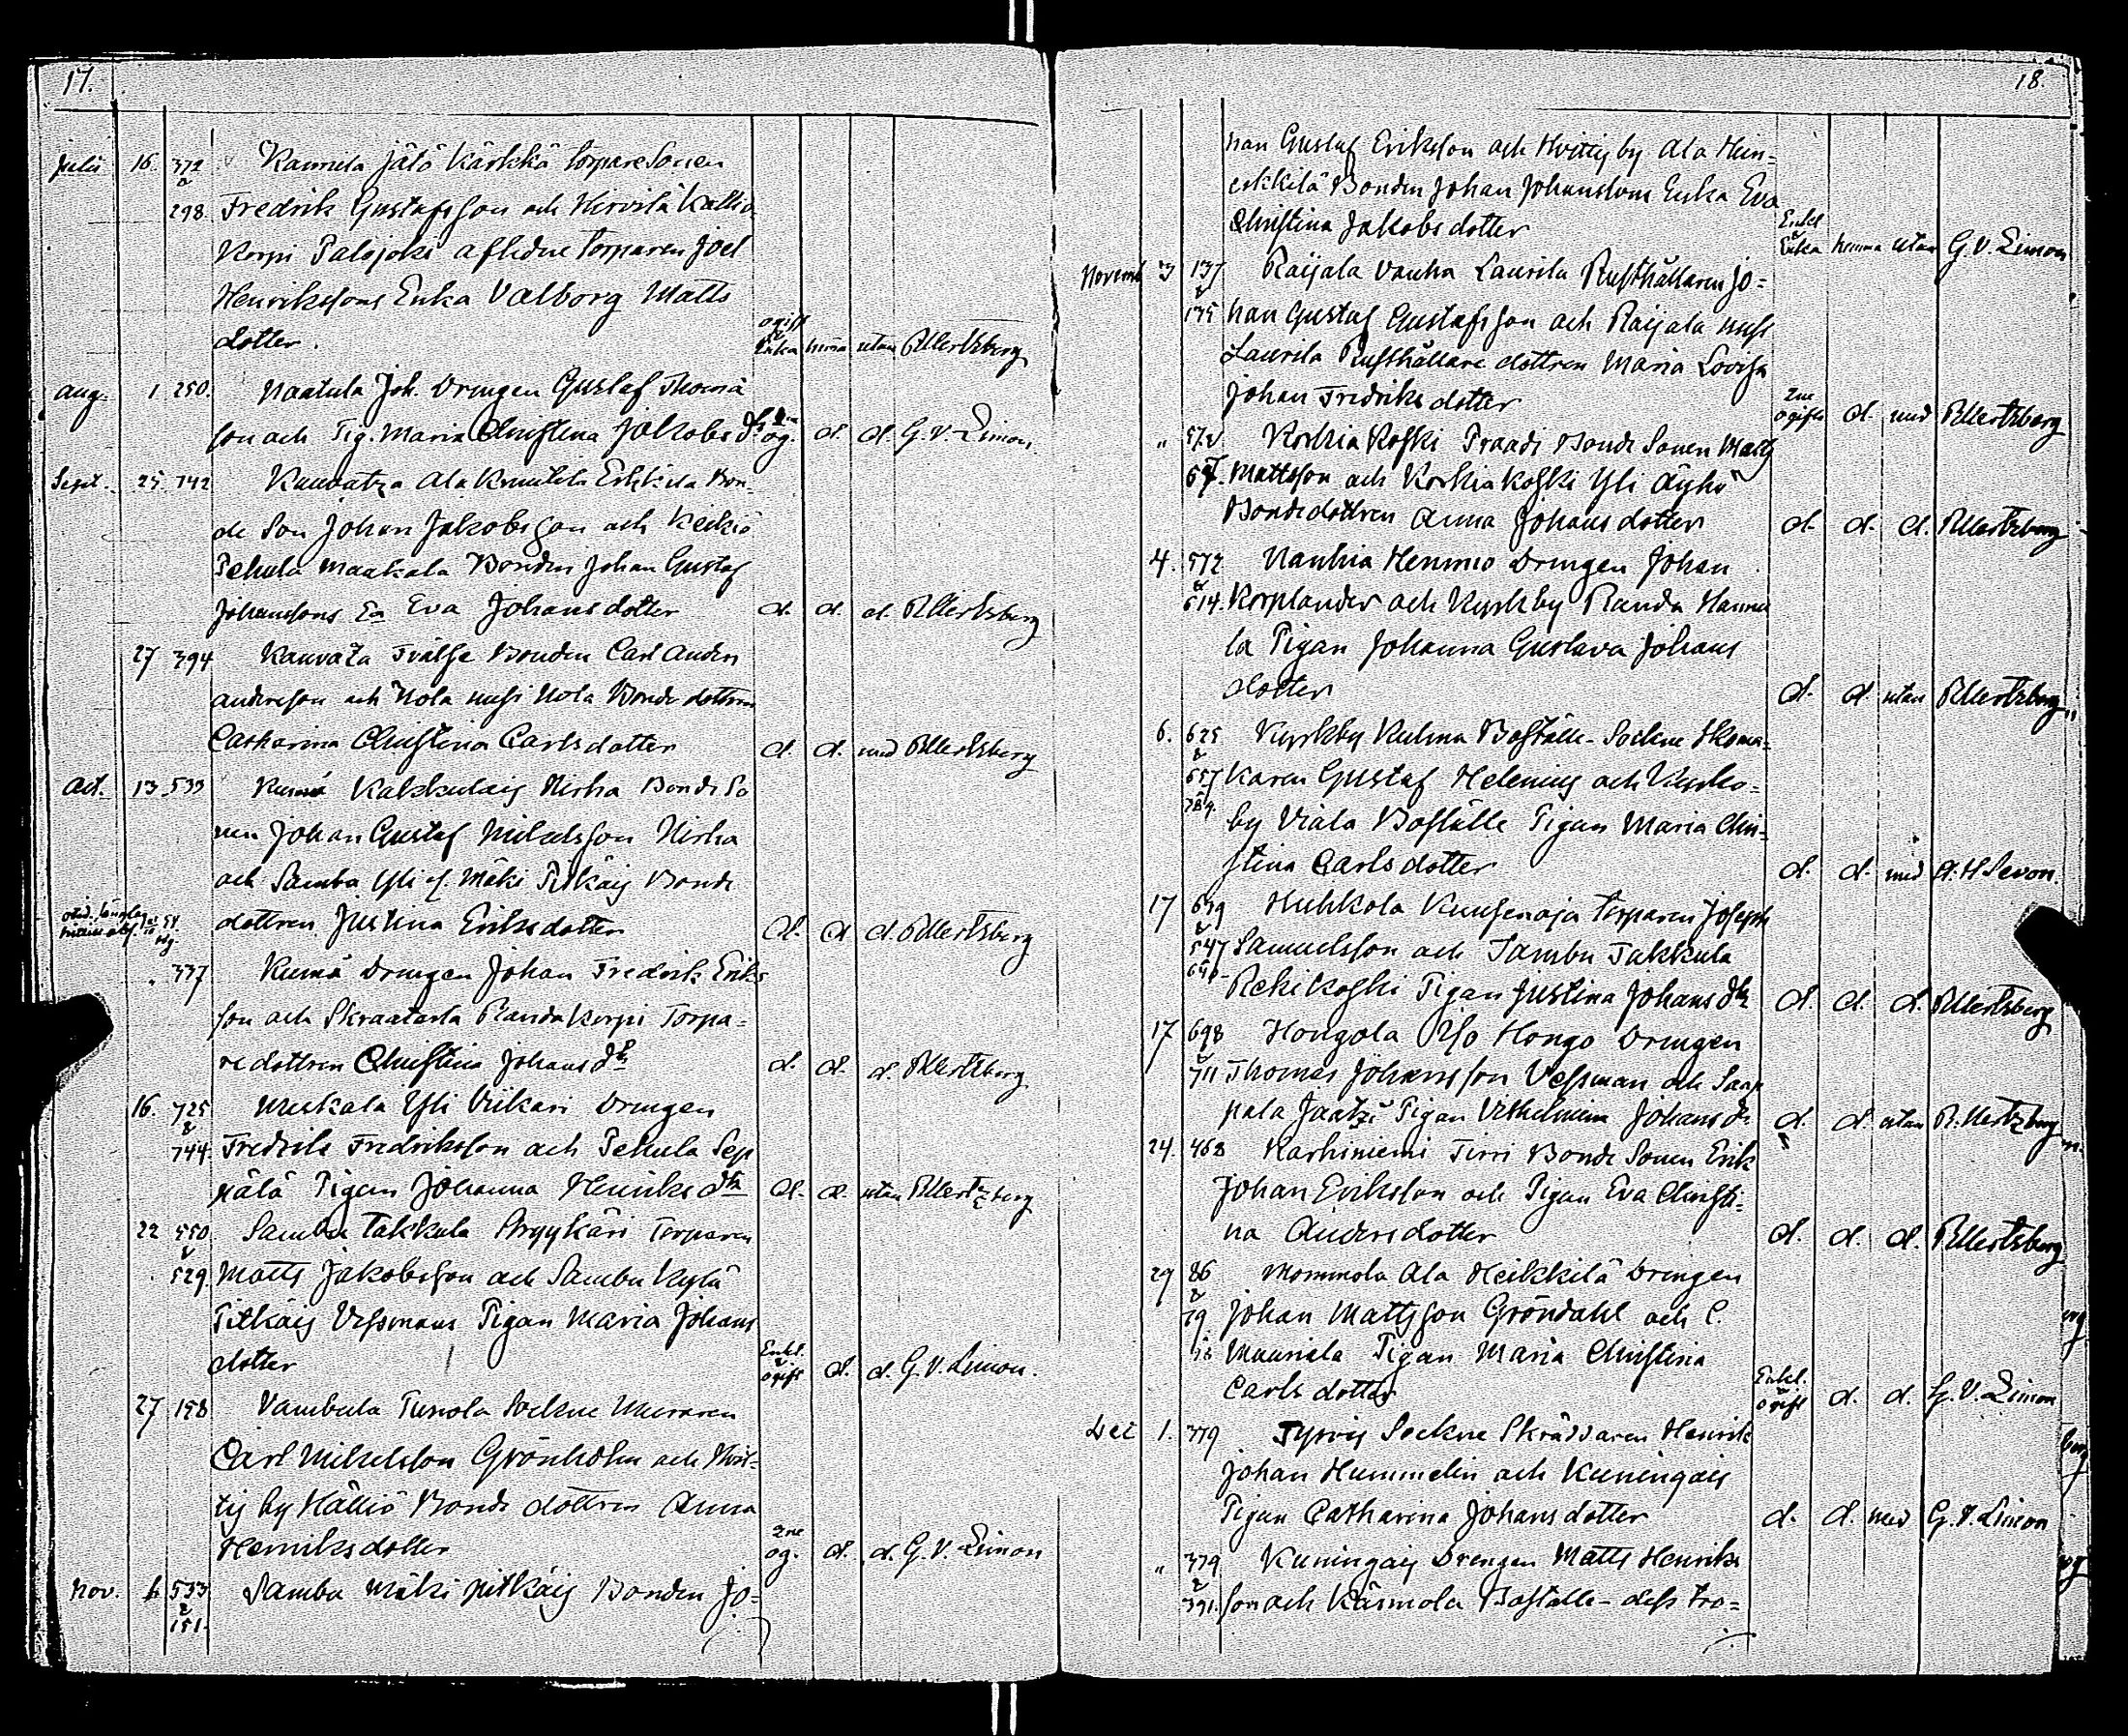 17.
Julii 16. 372 Kannela Jätö Kärkkä Torpare Sonen
& 298. Fredrik Gustafsson och Hirvilä Kallio
Korpi Palojoki aflidne Torparen Joel
Henrikssons Enka Valborg Matts
dotter. ogift & Enka hema utan R Mertzberg
Aug. 1 250. Naatula Joh. Drengen Gustaf Thomæ
son och Pig. Maria Christina Jakobs dr og. d. d. G. V. Limon
Sept. 25 742 Kauvatza Ala Erkkilä Bon-
de Son Johan Jakobsson och Keikiö
Pehula Maakala Bonden Johan Gustaf
Johanssons Ea Eva Johansdotter d. d. d. R Mertzberg
27 394 Kauvatza Bonden Carl Anders
Andersson och Nola Nola Bonde dottren
Catharina Christina Carlsdotter d. d. med R Mertzberg
Oct. 13 533 Kakkulais Hirha Bonde So
nen Johan Gustaf Mikelsson Hirha
och Samba Yli Mäki Pitkäis Bonde
dottren Justina Eriksdotter d. d. d. R Mertzberg
" 337 Kumä Drengen Johan Fredrik Eriks
son och Skraatarla Randakorpi Torpa-
redottren Christina Johans dr d. d. d. R Mertzberg
16. 725 Meskala Yli Viikari Drengen
& 744 Fredrik Fredriksson och Pehula Sep
pälä Pigan Johanna Henriks dr d. d. utan R Mertzberg
22 550 Sambu Takkula Torparen
& 529. Matts Jakobsson och Sambu Kylä
Pitkäis Vessmans Pigan Maria Johans
dotter Enkl. & ogift d. d. G. V. Limon.
27 158 Vambula Tunola Sockne Muraren
Carl Mikelsson Grönholm och Hvit-
tis by Hälliö Bonde dottren Anna
Henriksdotter 2ne og. d. d. G. V. Limon
Nov. 6 533 Samba Mäki pitkäis Bonden Jo-
& 151.
18.
han Gustaf Eriksson och Hvittis by Ala Hein-
Bonden Johan Johanssons Enka Eva
Christina Jakobsdotter Enkl & Enka hemma utan G. V. Limon
Novemb 3 137 Raijala Vanha Laurila Rusthållaren Jo-
& 135 han Gustaf Gustafsson och Raijala uusi
Laurila Rusthållare dottren Maria Lovisa
Johan Fredriksdotter 2ne ogifte d. med R Mertzberg
" 572 Korkia Koski Praadi Bonde Sonen Matts
Mattsson och Korkiakoski Yli Äyhö
Bondedottren Anna Johansdotter d. d. d. R Mertzberg
4. 572 Nanhia Hemmo Drengen Johan
& 614. Korplander och Kyrkby Randa Hannu
la Pigan Johanna Gustava Johans
dotter d. d. utan R Mertzberg
6. 625 Kyrkby Kulma Boställe - Sockne Skoma-
& 657 karen Gustaf Helenius och Kyrko-
by Viala Boställe Pigan Maria Chri-
stina Carlsdotter d. d. med A. H Sevon.
17 Huhkola Kuusenoja Torparen Joseph
& 547 Samuelsson och Sambu Takkula
Rekikoski Pigan Justina Johans dr d. d. d. R Mertzberg
17 698 Hongola Iso Hongo Drengen
& 711 Thomas Johansson Vessman och Saap
pala Jaatzi Pigan Vilhelmina Johans dr d. d. utan R. Mertzberg
24. 468 Karhiniemi Tirri Bonde Sonen Erik
Johan Eriksson och Pigan Eva Christi-
na Andersdotter d. d. d. R Mertzberg
29 86 Mommola Ala Heikkilä Drengen
& 79. Johan Mattsson Gröndahl och C.
Mauriala Pigan Maria Christina
Carls dotter Enkl. & ogift d. d. G. V. Limon
Dec 1. 379 Tyrvis Sockne Skräddaren Henrik
Johan Hummelin och Kuningais
Pigan Catharina Johansdotter d. d. med G. V. Limon
" 379 Kuningais Drengen Matts Henriks
& 391. son och Kärmola Boställe - dess tro-